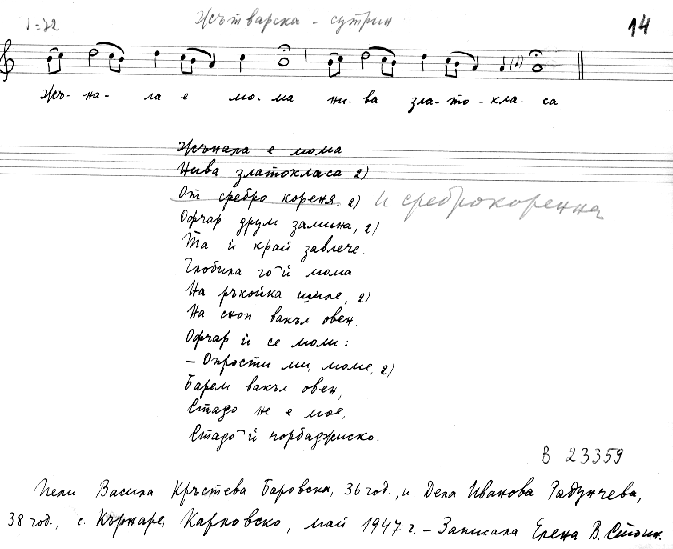 ♩=72 Жътварска - сутрин 14
Жъ- на- ла е мо- ма ни ва зла- то- кла- са
Жънала е мома
Нива златокласа 2)
От сребро кореня 2) И среброкоренна
Офчар друм замина, 2)
Та ѝ край завлече.
Глобила го ѝ мома
На ръкойка шиле, 2)
На сноп вакъл овен.
Офчар ѝ се моли:
– Опрости ми, моме, 2)
Барем вакъл овен,
Стадо не е мое,
Стадо ѝ чорбаджиско.
В 23359
Пели Васила Кръстева Баровска, 36 год., и Дела Иванова
38 год., с. Кърнаре, Карловско, май 1947 г. – Записала Елена В. Стоин.